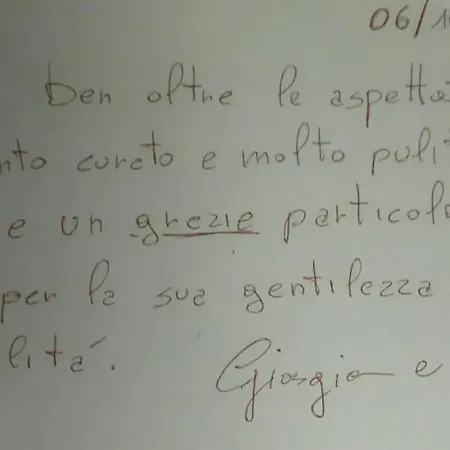 06/1
Ben oltre le aspetta
nto curato e molto pulit
e un grazie particola
per la sua gentilezza
lità.
Giorgia e